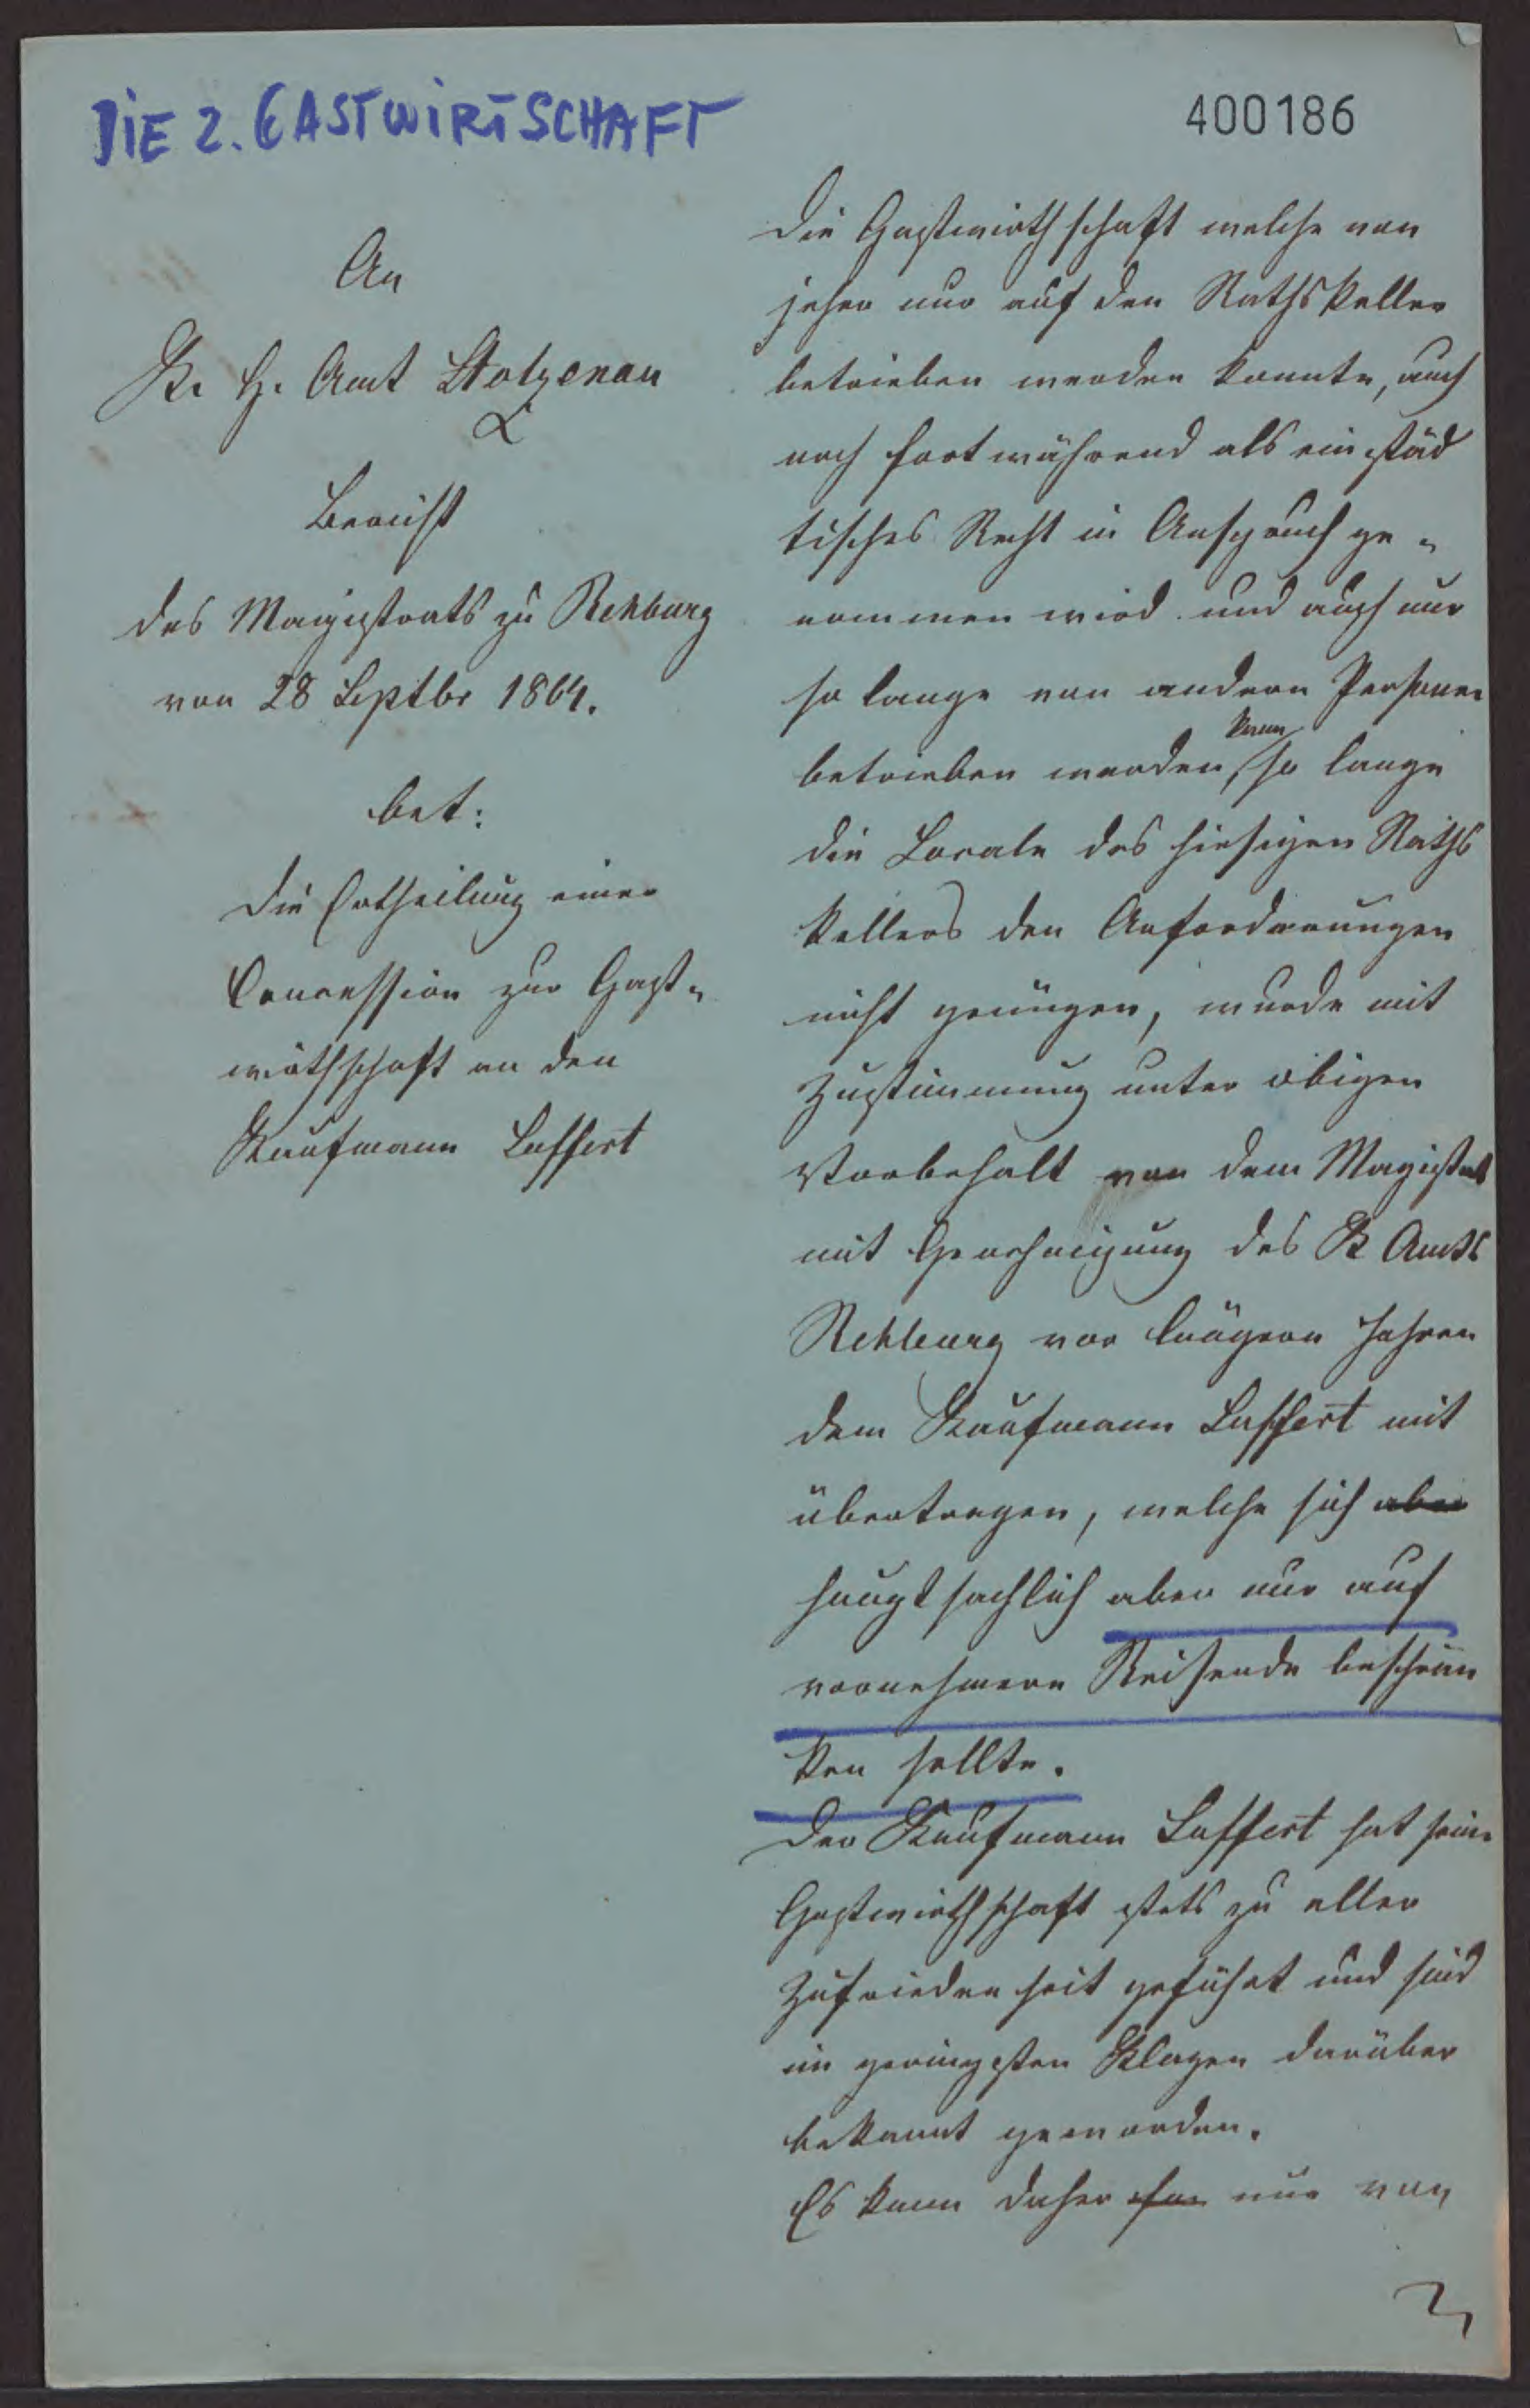 DIE 2. GASTWIRTSCHAFT
400186
An
K. H. Amt Stolzenau
Bericht
des Magistrats zu Rehburg
von 28 Septbr 1864.
bet:
die Ertheilung einer
Concession zur Gast-
wirthschaft an den
Kaufmann Laffert
Die Gastwirthschaft welche von
jeher nur auf den Rathskeller
betrieben werden konnte, auch
noch fortwährend als ein städ
tisches Recht in Anspruch ge-
nommen wird und auch nur
so lange von andern Personen
kann
betrieben werden, so lange
die Locale des hiesigen Raths
kellers den Anforderungen
nicht genügen, wurde mit
Zustimmung unter obigen
Vorbehalt von dem Magistrat
mit Genehmigung des K Amts
Rehburg vor längern Jahren
dem Kaufmann Laffert mit
übertragen, welche sich aber
hauptsachlich aber nur auf
vornehmere Reisende beschrän
ken sollte.
Der Kaufmann Laffert hat seine
Gastwirthschaft stets zu aller
Zufriedenheit geführt und sind
im geringsten Klagen darüber
bekannt geworden.
Es kann daher nur von